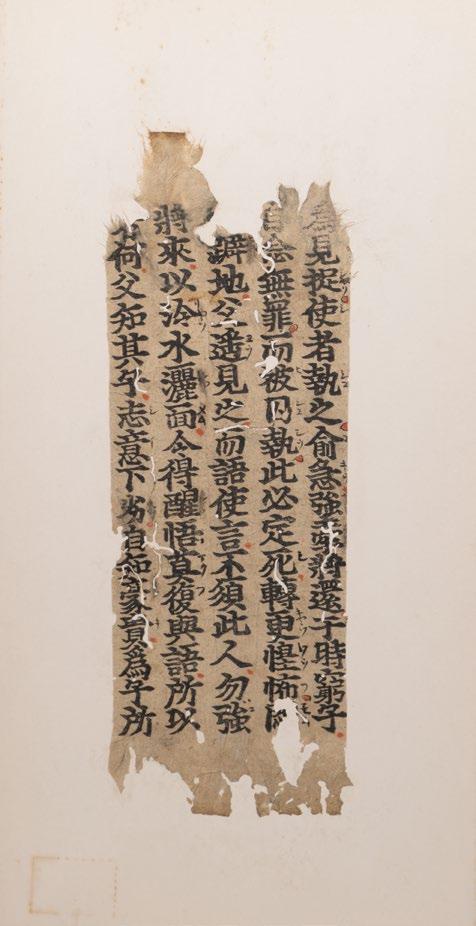 為見捉使者執之俞急強牽將還于時窮子
自念無罪而被囚執此必定死轉更惶怖悶
躃地父遥見之而語使言不須此人勿強
將來以泠水灑面令得醒悟莫復與語所以
者何父知其子志意下劣自知豪貴為子所